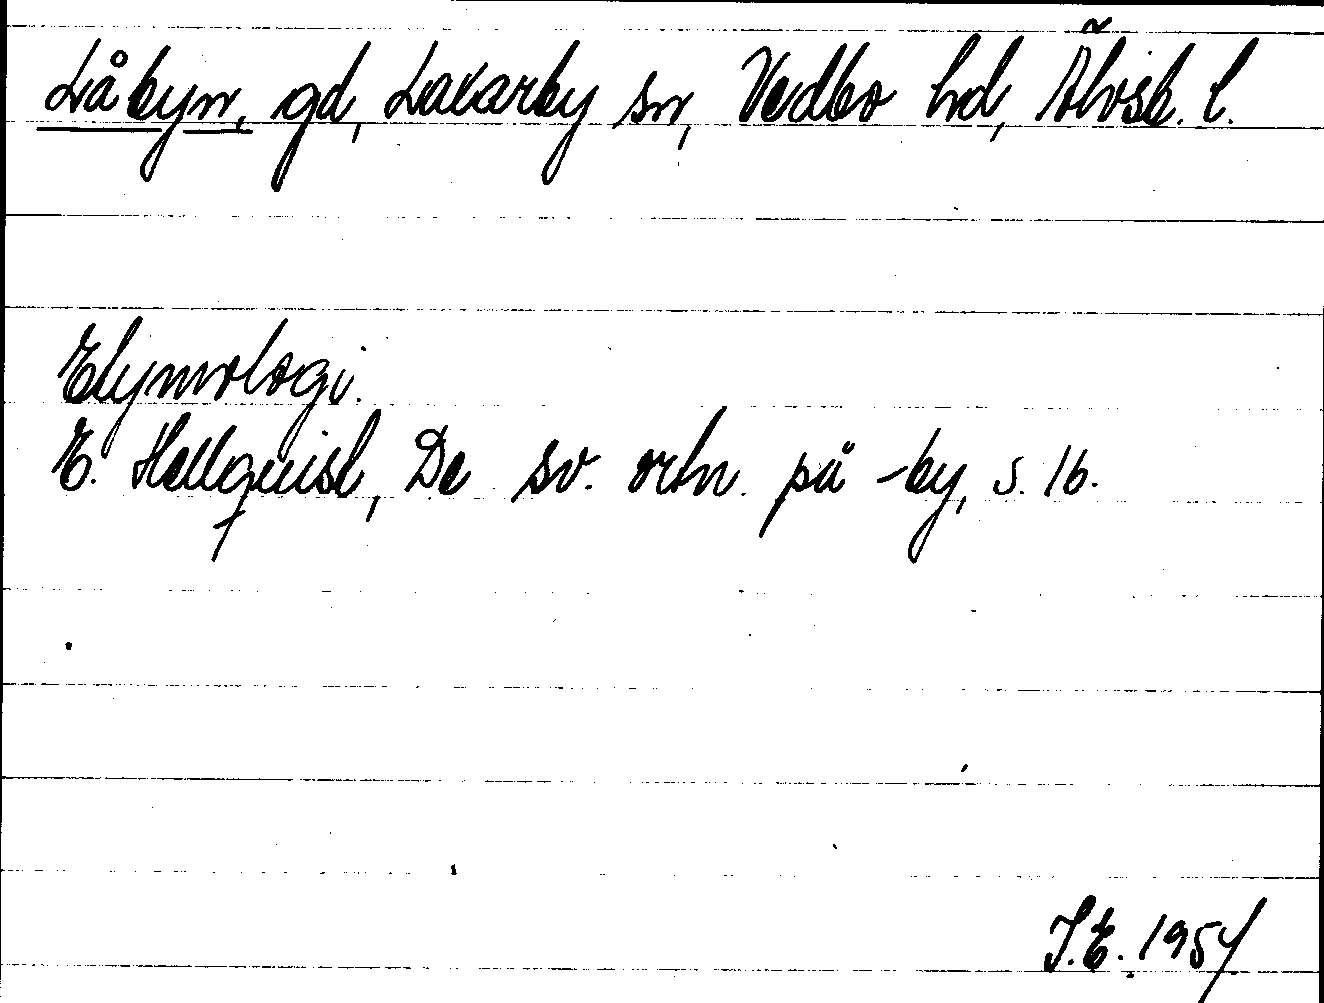 Låbyn, gd, Laxarby sn, Vedbo hd, Älvsb. l.
Etymologi.
E. Hellquist, De sv. ortn. på -by, s. 16.
I.E. 1954